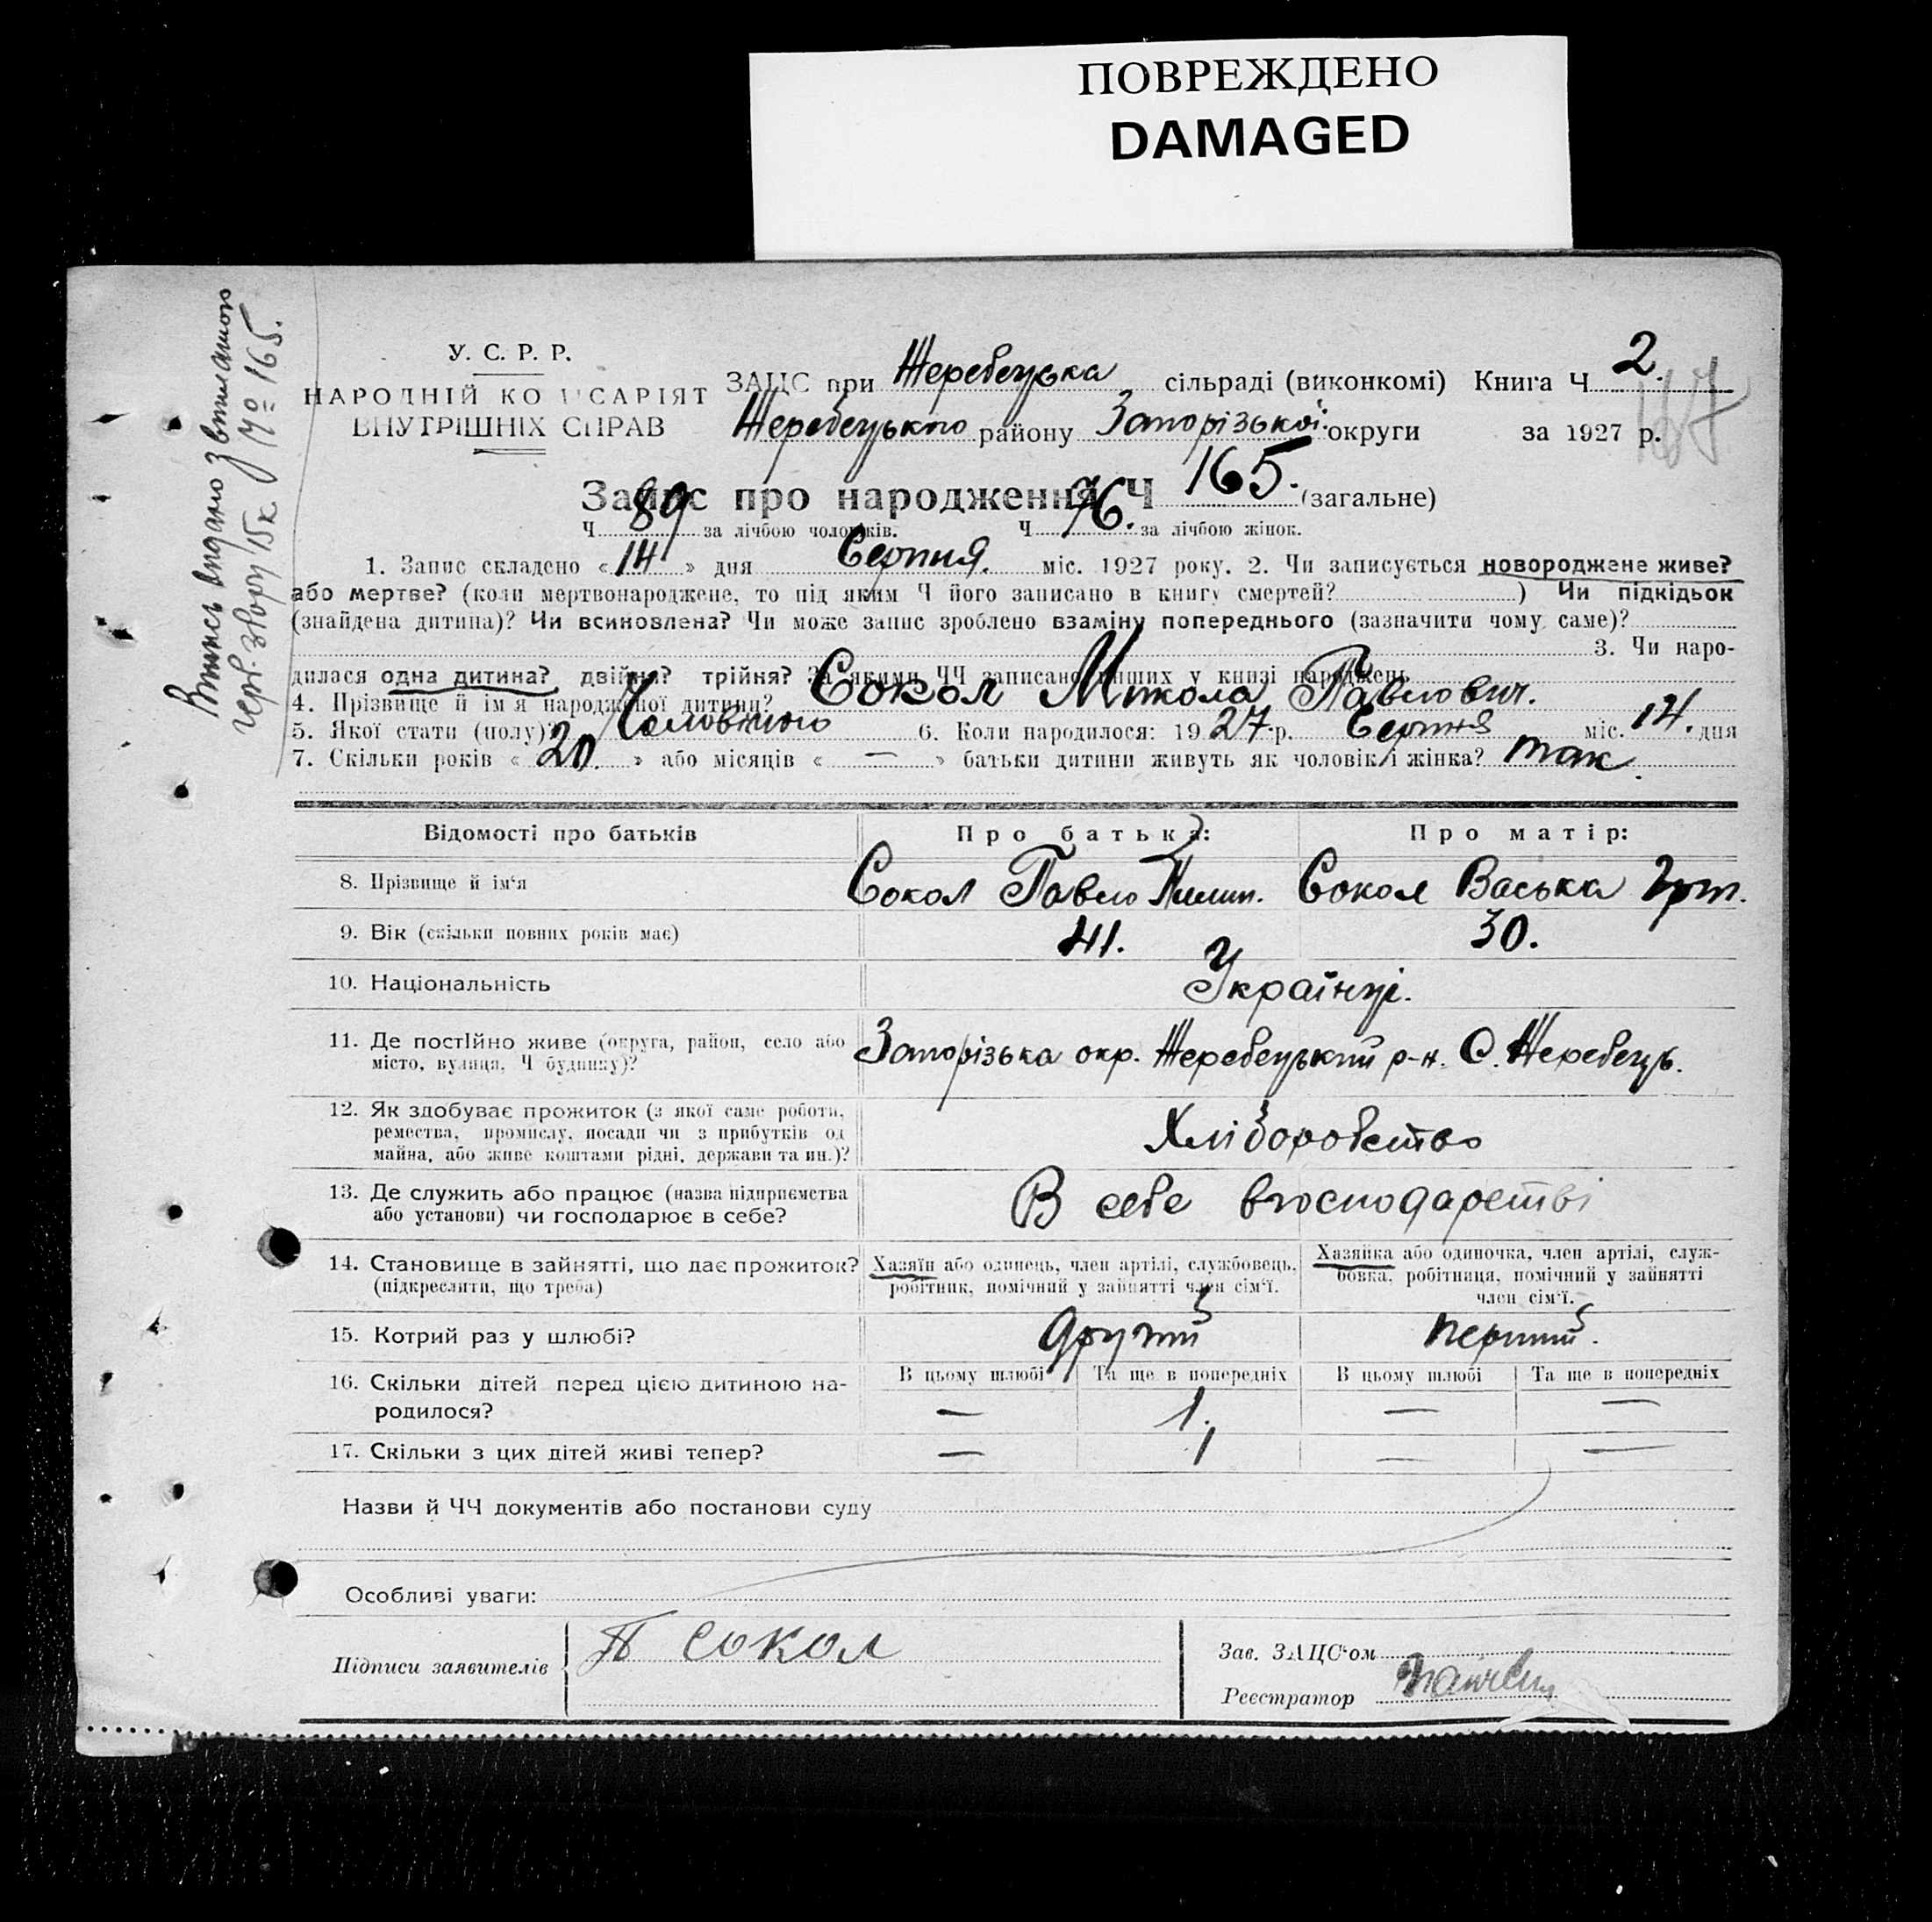 ПОВРЕЖДЕНО
DAMAGED
Випись видано з
№ 165.
У. С. Р. Р.
НАРОДНІЙ КОМІСАРІЯТ
ВНУТРІШНІХ СПРАВ
ЗАЦС при Жеребецька сільраді (виконкомі) Книга Ч 2.
Жеребецького району Запорізької округи за 1927 р.
167
Запис про народження Ч 165. (загальне)
Ч 89 за лічбою чоловіків. Ч 76. за лічбою жінок.
1. Запис складено « 14 » дня Серпня. міс. 1927 року. 2. Чи записується новороджене живе?
або мертве? (коли мертвонароджене, то під яким Ч його записано в книгу смертей? ) Чи підкідьок
(знайдена дитина)? Чи всиновлена? Чи може запис зроблено взаміну попереднього (зазначити чому саме)?
3. Чи наро-
дилася одна дитина? двійня? трійня? За якими ЧЧ записано инших у книзі народжень
4. Прізвище й ім'я народженої дитини? Сокол Микола Павлович.
5. Якої стати (полу)? Чоловічого 6. Коли народилося: 1927 р. Серпня міс. 14. дня
7. Скільки років « 20. » або місяців « — » батьки дитини живуть як чоловік і жінка? так.
Відомості про батьків Про батька: Про матір:
8. Прізвище й ім'я Сокол Павло Пилип. Сокол Васька Григ.
9. Вік (скільки повних років має) 41. 30.
10. Національність Українці.
11. Де постійно живе (округа, район, село або
місто, вулиця, Ч будинку)? Запорізька окр. Жеребецький р-н. С. Жеребець.
12. Як здобуває прожиток (з якої саме роботи,
ремества, промислу, посади чи з прибутків од
майна, або живе коштами рідні, держави та ин.)? Хліборобство
13. Де служить або працює (назва підприємства
або установи) чи господарює в себе? В себе вгосподарстві
14. Становище в зайнятті, що дає прожиток?
(підкреслити, що треба)
Хазяїн або одинець, член артілі, службовець,
робітник, помічний у зайнятті член сім'ї.
Хазяйка або одиночка, член артілі, служ-
бовка, робітниця, помічний у зайнятті
член сім'ї.
15. Котрий раз у шлюбі? другий перший.
В цьому шлюбі Та ще в попередніх В цьому шлюбі Та ще в попередніх
16. Скільки дітей перед цією дитиною на-
родилося? — 1. — —
17. Скільки з цих дітей живі тепер? — 1 — —
Назви й ЧЧ документів або постанови суду
Особливі уваги:
Підписи заявителів П Сокол
Зав. ЗАЦС'ом
Реєстратор